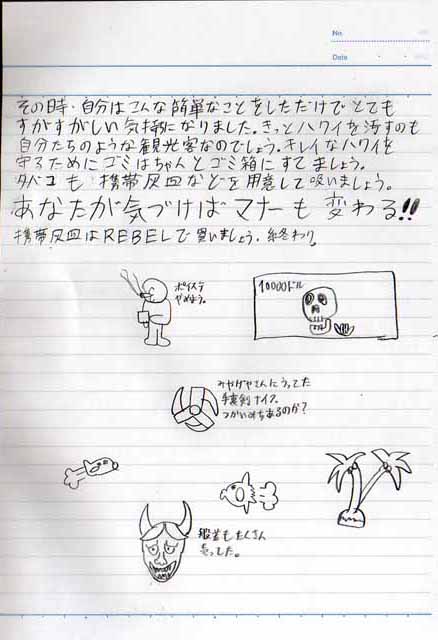 No.
Date
その時、自分はこんな簡単なことをしただけでとても
すがすがしい気持になりました。きっとハワイを汚すのも
自分たちのような観光客なのでしょう。キレイなハワイを
守るためにゴミはちゃんとゴミ箱にすてましょう。
タバコも携帯灰皿などを用意して吸いましょう。
あなたが気づけばマナーも変わる!!
携帯灰皿はREBELで買いましょう。終わり。
ポイステ
やめよう。
10000ドル
みやげやさんにうってた
手裏剣ナイフ。
つかいみちあるのか?
般若もたくさん
売ってた。